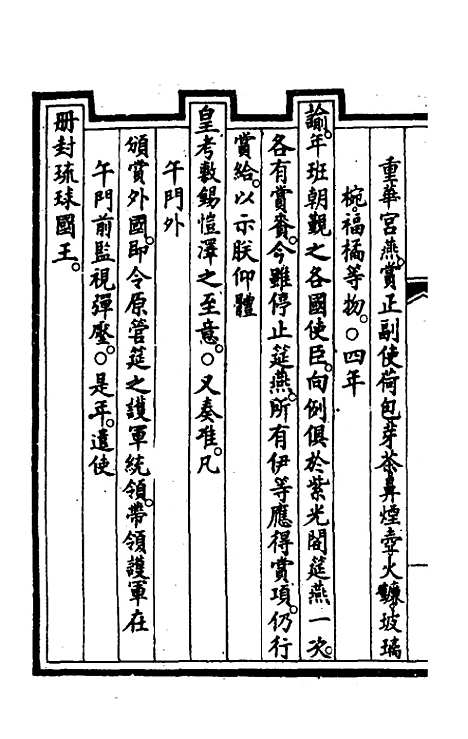 重華宮燕。賞正副使荷包芽茶鼻煙壺火鐮玻璃
椀福橘等物。○四年
諭。年班朝覲之各國使臣。向例俱於紫光閣筵燕一次。
各有賞賚。今雖停止筵燕。所有伊等應得賞項。仍行
賞給。以示朕仰體
皇考敷錫愷澤之至意。○又奏准。凡
午門外
頒賞外國。即令原管筵之護軍統領。帶領護軍在
午門前監視彈壓。○是年。遣使
册封琉球國王。